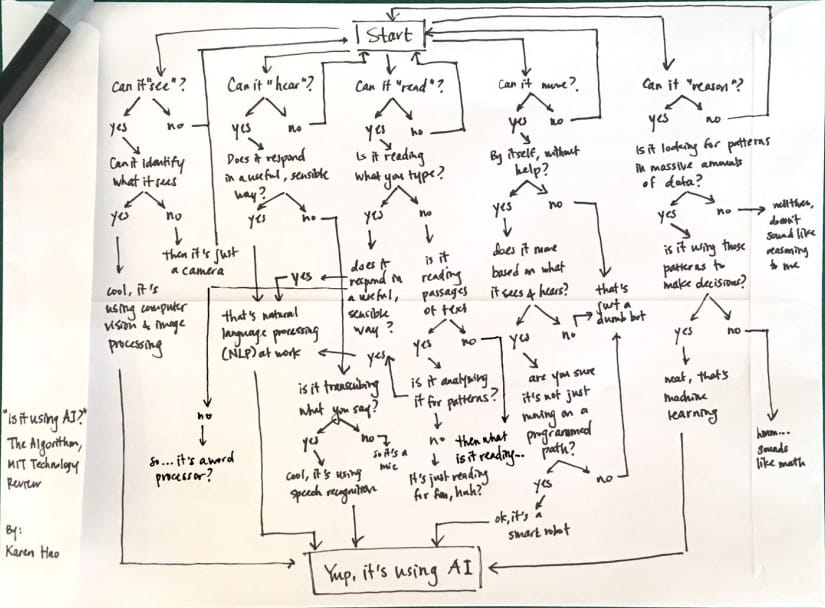 Start
Can it "see"?
yes
no
Can it identify
what it sees
yes
no
then it's just
a camera
cool, it's
using computer
vision & image
processing
Can it "hear"?
yes
no
Does it respond
in a useful, sensible
way?
yes
no
that's natural
language processing
(NLP) at work
is it transcribing
what you say?
yes
no
so it's a
mic
cool, it's using
speech recognition
Can it "read"?
yes
no
Is it reading
what you type?
yes
no
does it
respond in
a useful,
sensible
way?
yes
no
so... it's a word
processor?
is it
reading
passages
of text
yes
no
is it analyzing
it for patterns?
yes
no
It's just reading
for fun, huh?
then what
is it reading...
Can it move?
yes
no
By itself, without
help?
yes
no
does it move
based on what
it sees & hears?
yes
no
that's
just a
dumb bot
are you sure
it's not just
running on a
programmed
path?
yes
no
ok, it's a
smart robot
Can it "reason"?
yes
no
Is it looking for patterns
in massive amounts
of data?
yes
no
well then,
doesn't
sound like
reasoning
to me
is it using those
patterns to
make decisions?
yes
no
neat, that's
machine
learning
hmm...
sounds
like math
Yup, it's using AI
"Is it using AI?"
The Algorithm,
MIT Technology
Review
By:
Karen Hao